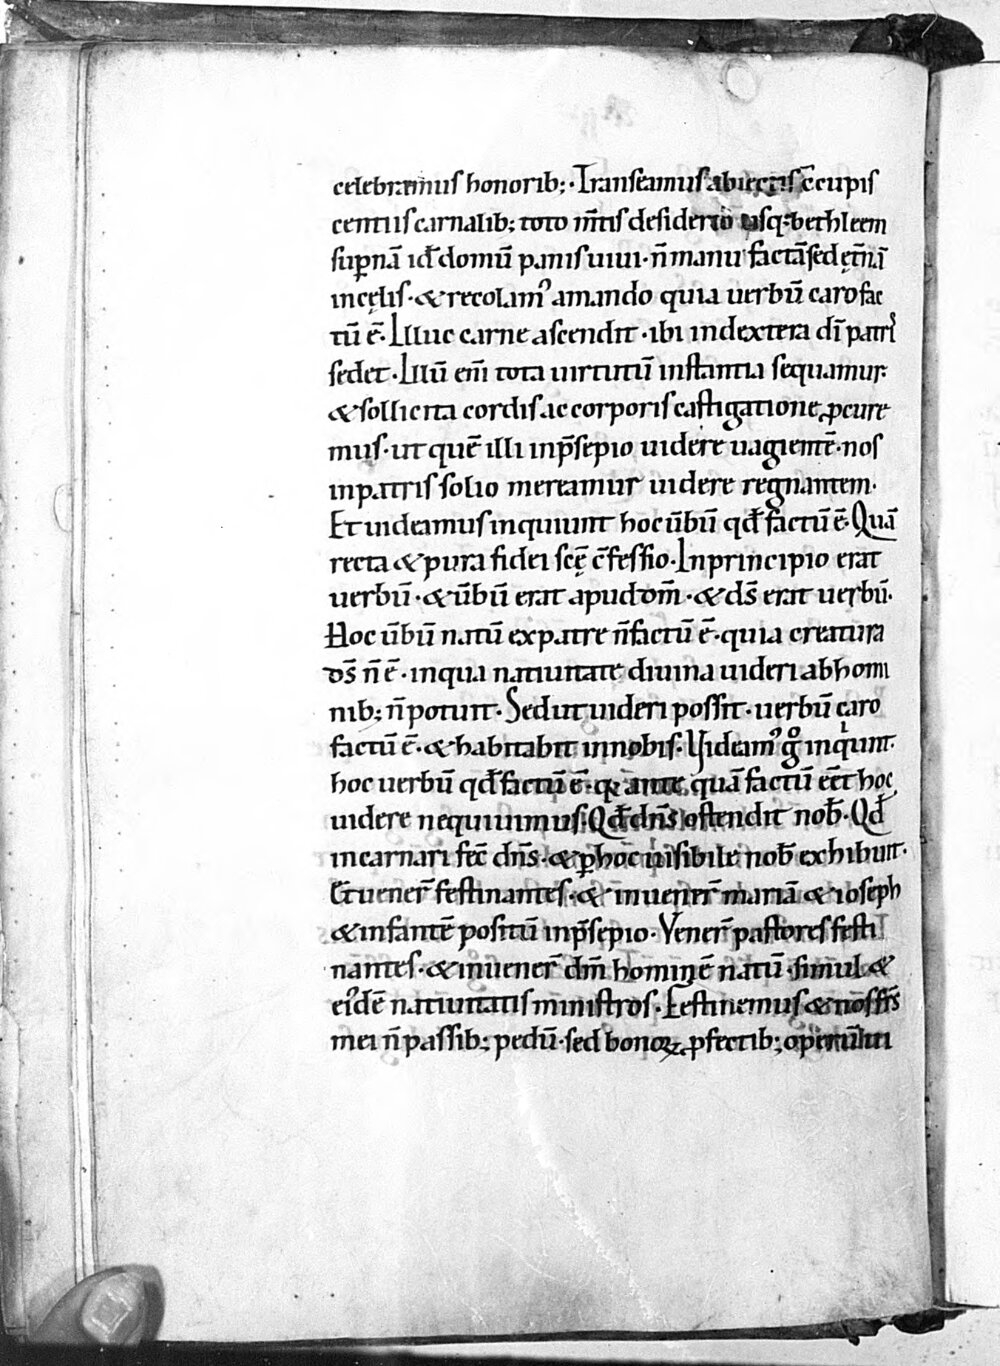 celebramus honorib;· Transeamus abiectis c̄cupis
centiis carnalib; toto m̄tis desiderio usq; bethleem
sup̱nā id̄ domū panis uiui· n̄ manu factā sed ęt̄nā
in cęlis· & recolam᾽ amando quia uerbū caro fac
tū ē· Illuc carne ascendit· ibi indextera dī patrı᾽
sedet· Illū em̄ tota uirtutū instantia sequamur·
& sollicita cordis ac corporis castigatione ꝓcure
mus· ut quē illi inp̄sepio uidere uagientē· nos
inpatris solio mereamur uidere regnantem·
Et uideamus inquiunt hoc ūbū qd̄ factū ē· Quā
recta & pura fidei scę̄ c̄fessio· Inprincipio erat
uerbū· & ūbū erat apud dm̄· & ds̄ erat uerbū·
Hoc ūbū natū expatre n̄ factū ē· quia creatura
ds̄ n̄ ē· inqua natiuitate diuina uideri abhomi
nib; n̄ potuit· Sed ut uideri possit· uerbū caro
factū ē· & habitabit innobis· Videam᾽ gͦ inqͥunt·
hoc uerbū qd̄ factū ē· qꝛ ante quā factū eēt hoc
uidere nequiuimus· Qd̄ dn̄s ostendit nob̄· Qd̄
incarnari fec̄ dn̄s· & ꝑhoc uisibile nob̄ exhibuit·
Et uener̄ festinantes· & inuener̄ mariā & ioseph
& infantē positū inp̄sepio· Vener̄ pastores festi
nantes· & inuener̄ dm̄ hominē natū· simul &
ei᾽dē natiuitatis ministros· Festinemus & nos fr̄s
mei n̄ passib; pedū· sed bonoꝝ ꝓfectib; operū